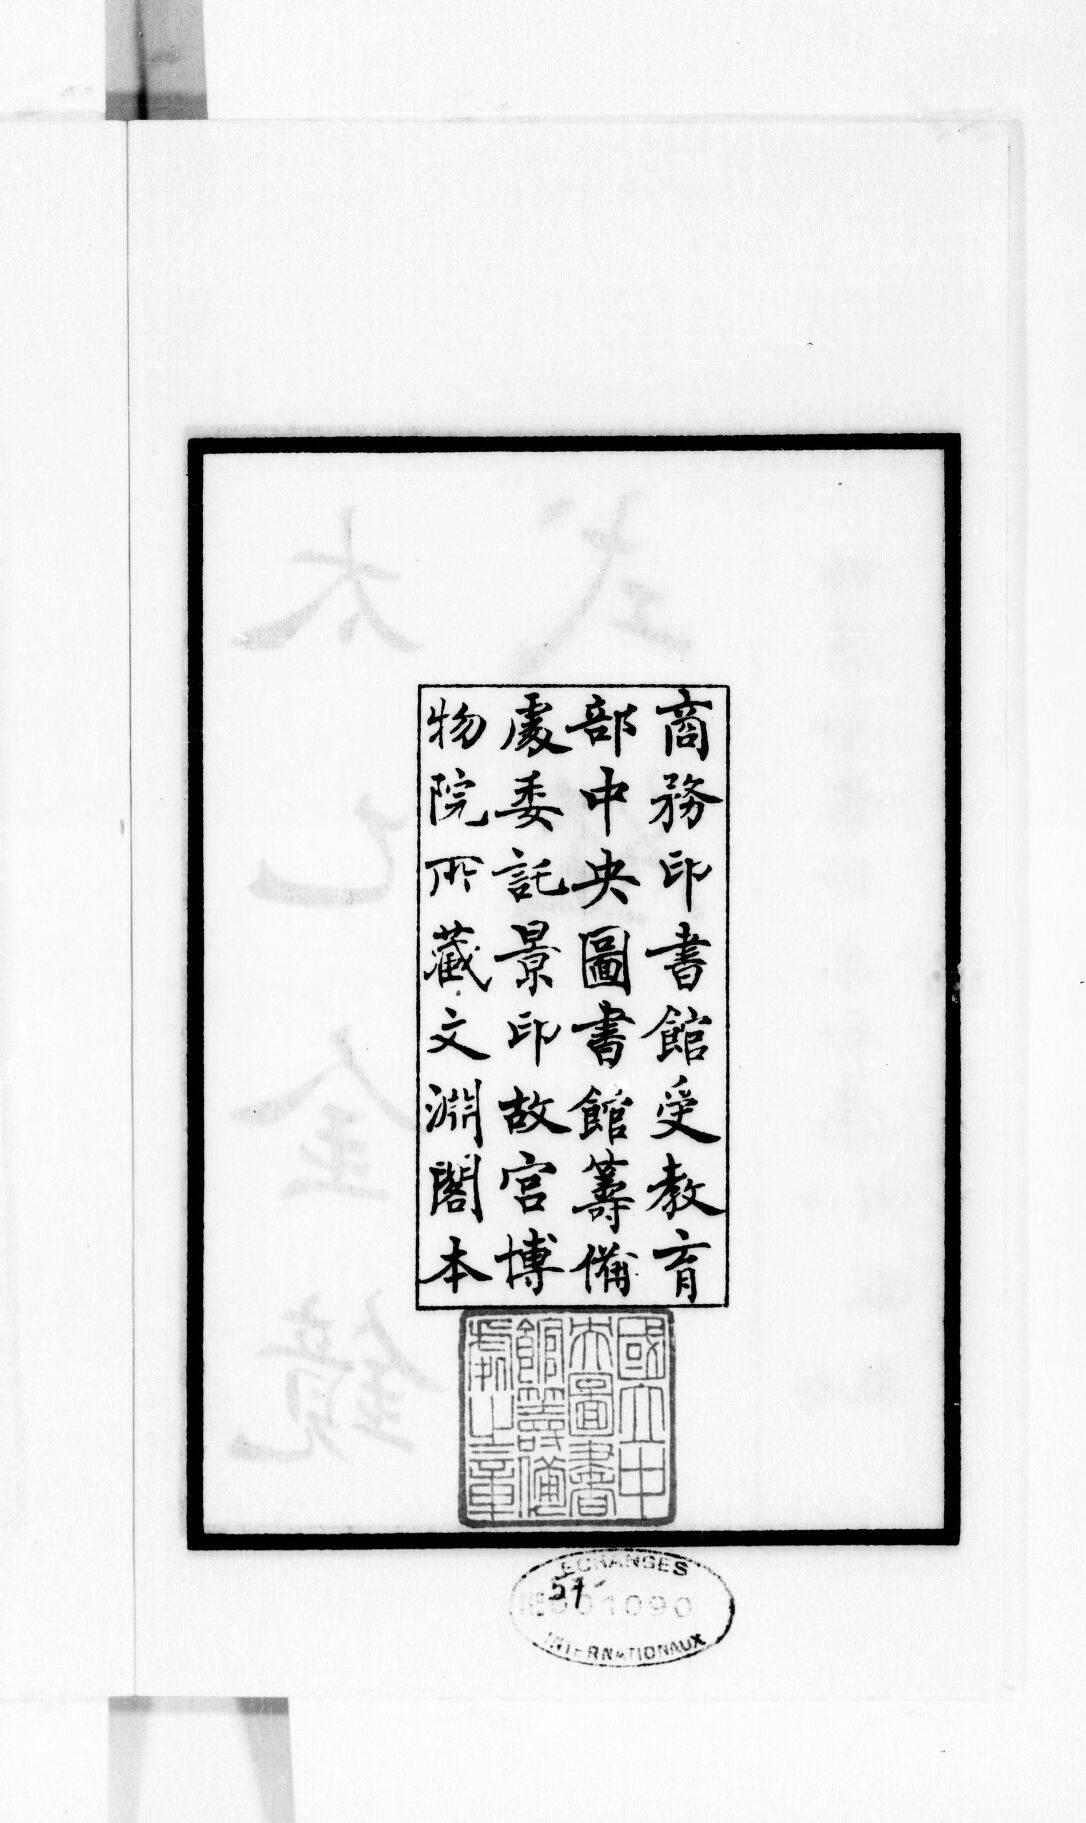 商務印書館受教育
部中央圖書館籌備
處委託景印故宮博
物院所藏文淵閣本
國立中
央圖書
館籌備
處之章
ECHANGES
57-
001090
INTERNATIONAUX